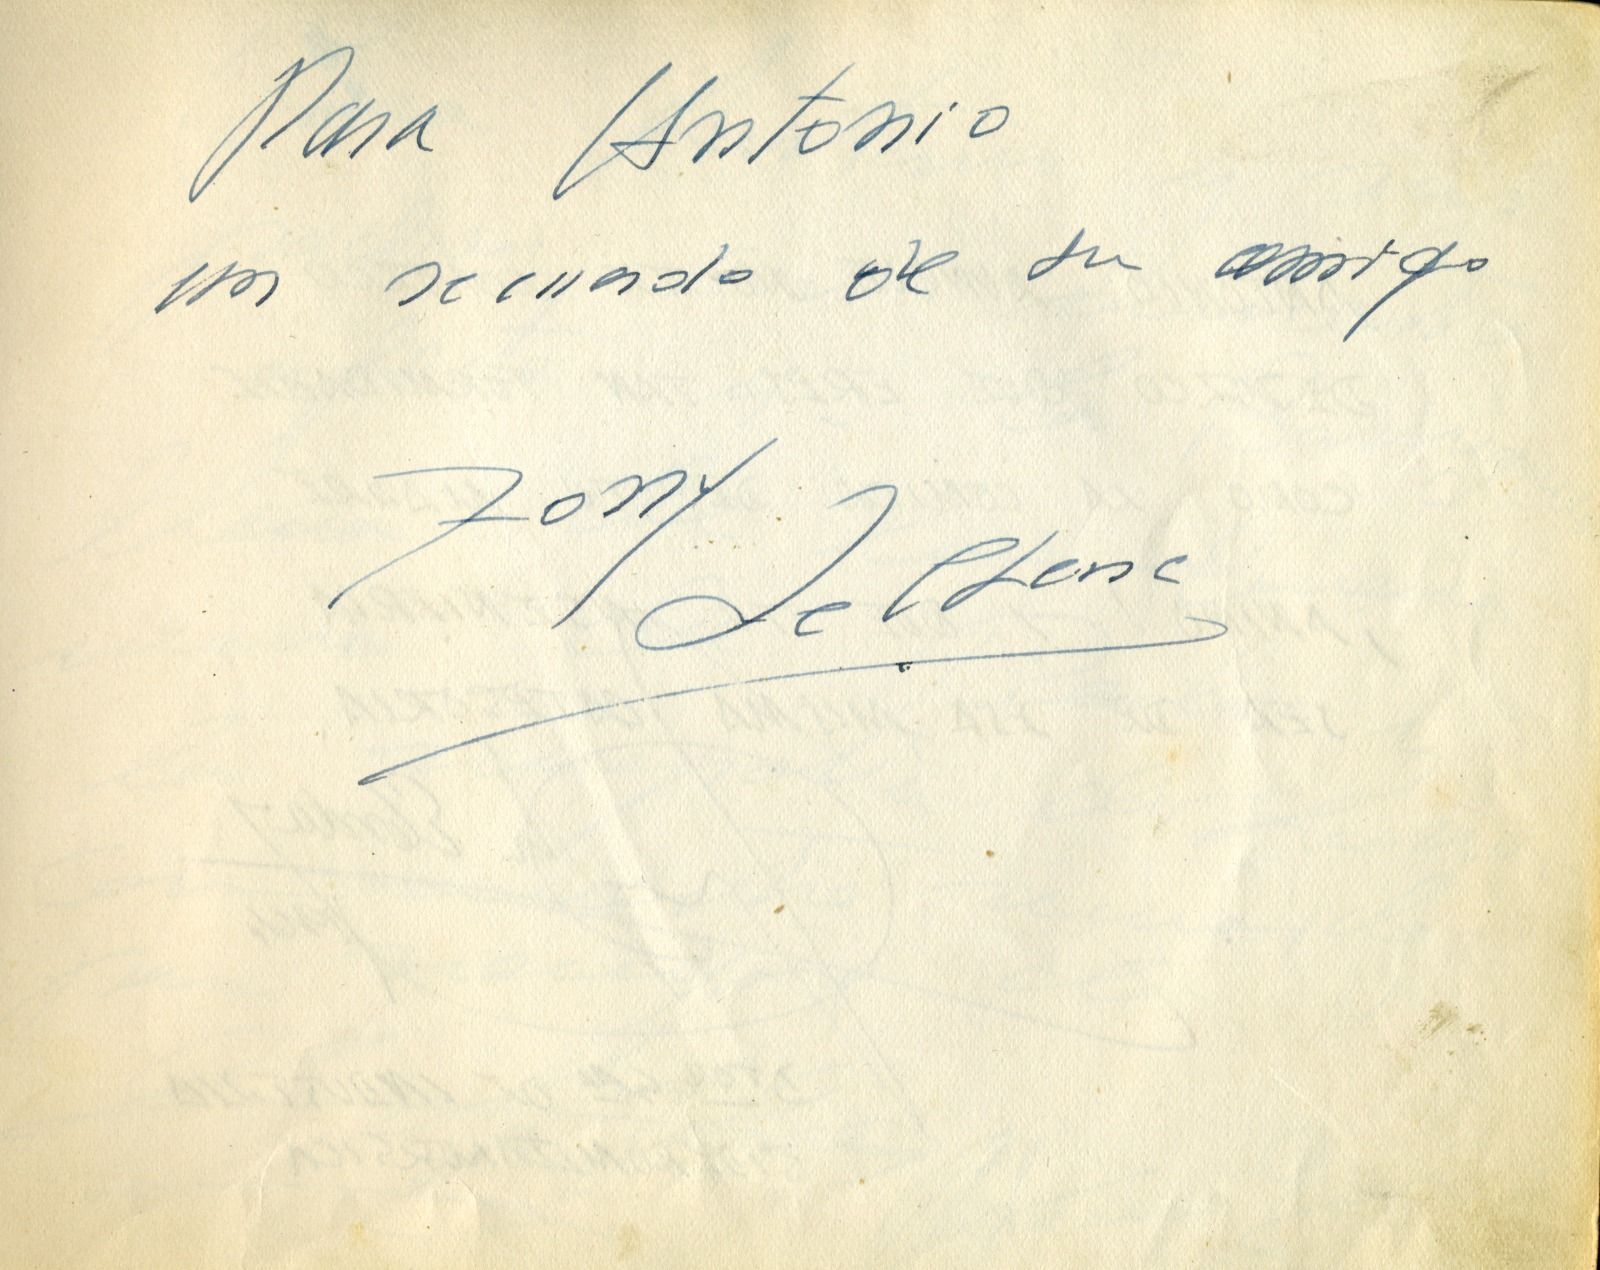 Para Antonio
un recuerdo de su amigo
Tony Leblanc